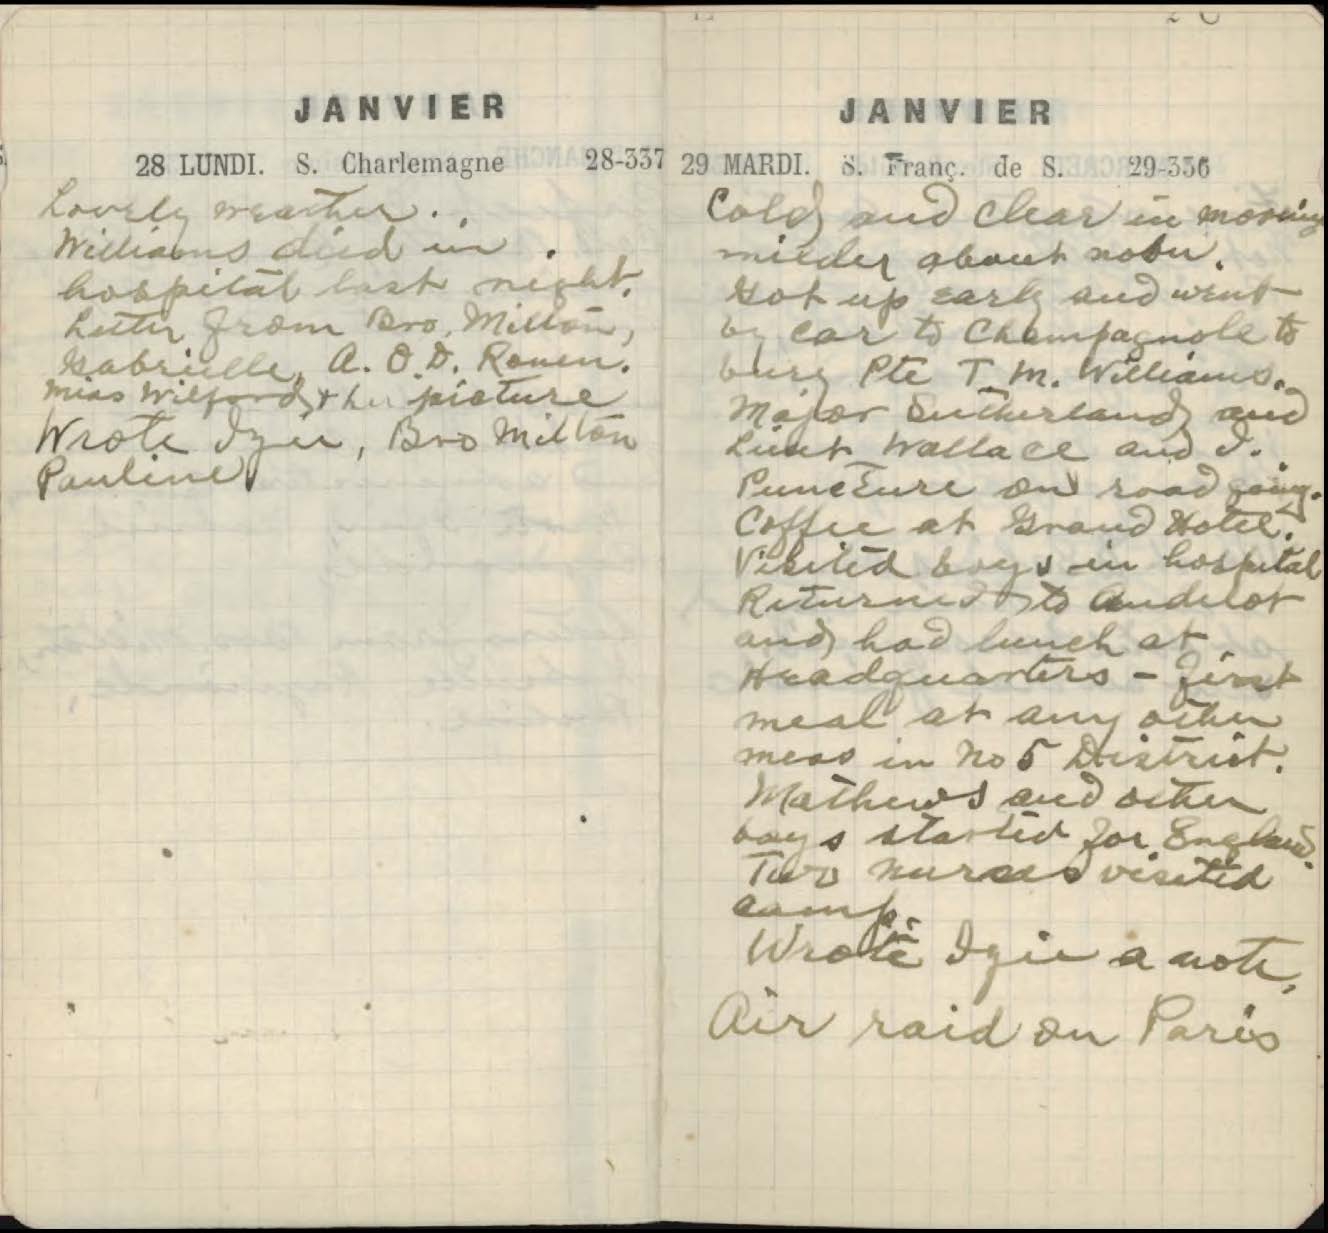 JANVIER
28 LUNDI. S. Charlemagne 28-337
Lovely weather..
Williams died in
hospital last night.
Letter from Bro. Milton,
Gabrielle, A. O. D. Rouen.
Miss Wilford, & her picture
Wrote Izie, Bro Milton
Pauline
JANVIER
29 MARDI. S. Franç. de S. 29-336
Cold and clear in morning
milder about noon.
Got up early and went
by car to Champagnole to
bury Pte T. M. Williams.
Major Sutherland, and
Lieut Wallace and I.
Puncture on road going.
Coffee at Grand Hotel.
Visited boys in hospital
Returned to Andelot
and had lunch at
Headquarters - first
meal at any other
mess in No 5 District.
Mathews and other
boys started for England.
Two nurses visited
camp.
Wrote Izie a note,
Air raid on Paris